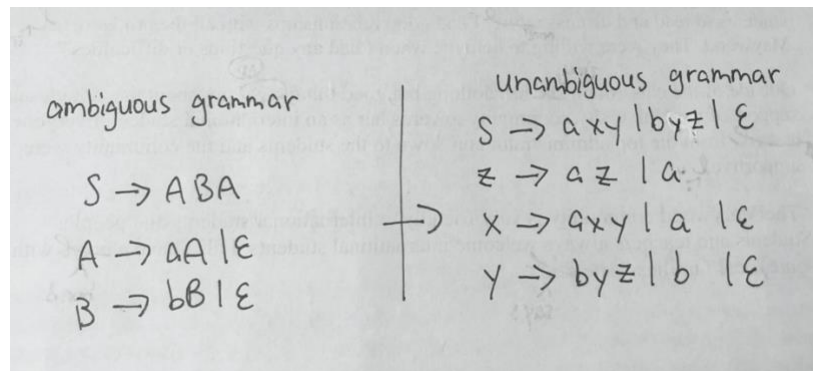 ambiguous grammar
S → ABA
A → aA | ε
B → bB | ε
unambiguous grammar
S → axy | byz | ε
z → az | a
x → axy | a | ε
y → byz | b | ε